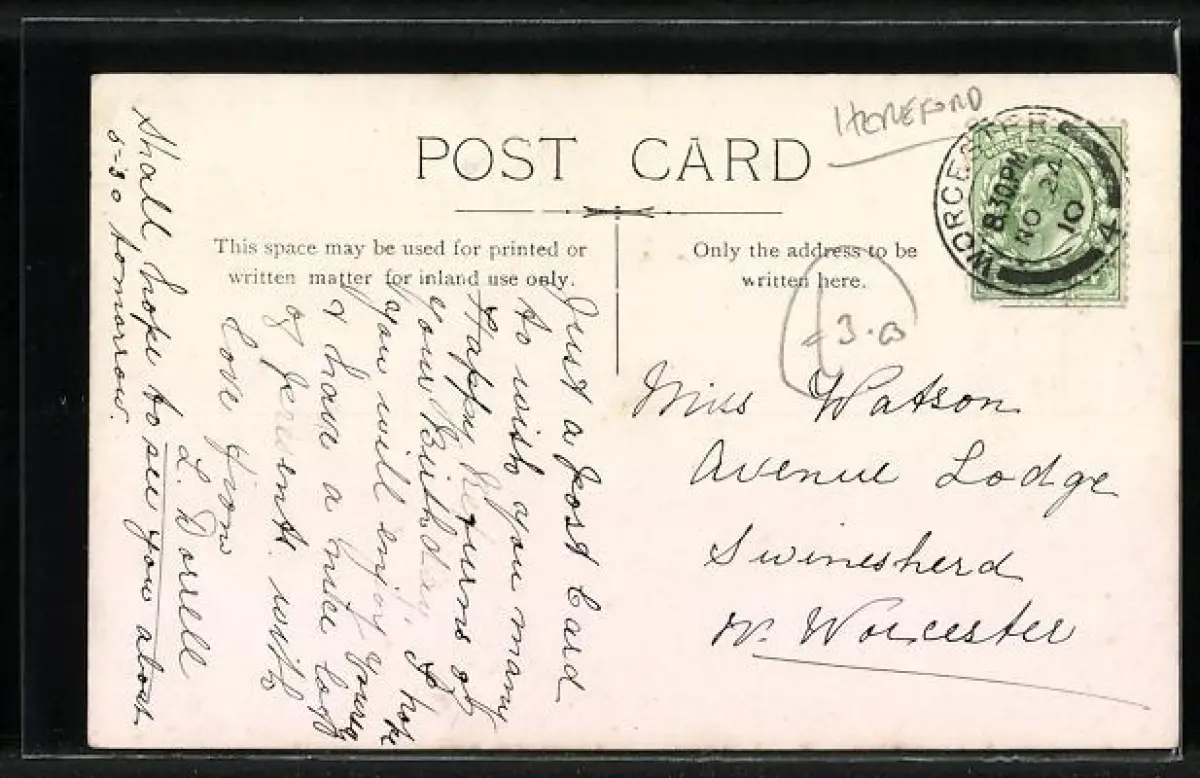 HEREFORD
POST CARD
This space may be used for printed or
written matter for inland use only.
Only the address to be
written here.
WORCESTER
8.30PM
NO 24
10
4
3.0
Just a post Card
to wish you many
Happy Returns of
your Birthday, I hope
you will enjoy
& have a nice lot
of presents. with
love from
L. Dorrell
Shall hope to see you about
5-30 tomorrow.
Miss Watson
Avenue Lodge
Swinesherd
Nr. Worcester